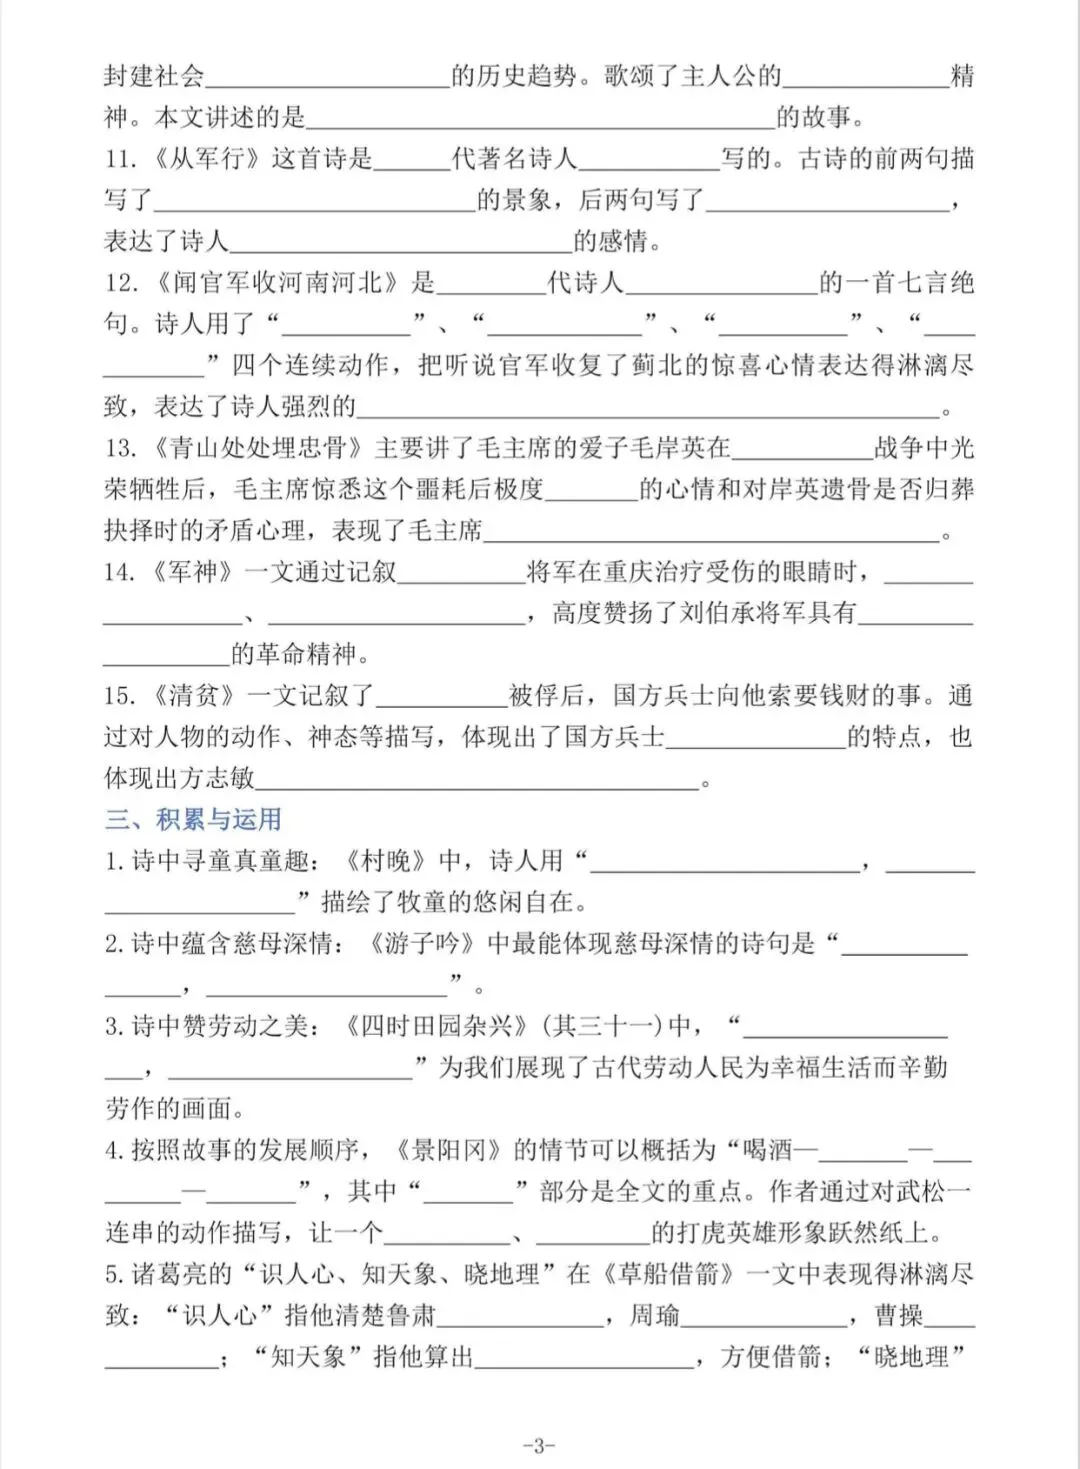 封建社会____________________的历史趋势。歌颂了主人公的______________精
神。本文讲述的是______________________________________的故事。
11.《从军行》这首诗是____代著名诗人___________写的。古诗的前两句描
写了__________________________的景象，后两句写了____________________，
表达了诗人___________________________的感情。
12.《闻官军收河南河北》是_________代诗人_______________的一首七言绝
句。诗人用了“__________”、“____________”、“__________”、“____
________”四个连续动作，把听说官军收复了蓟北的惊喜心情表达得淋漓尽
致，表达了诗人强烈的______________________________________________。
13.《青山处处埋忠骨》主要讲了毛主席的爱子毛岸英在___________战争中光
荣牺牲后，毛主席惊悉这个噩耗后极度_______的心情和对岸英遗骨是否归葬
抉择时的矛盾心理，表现了毛主席____________________________________。
14.《军神》一文通过记叙__________将军在重庆治疗受伤的眼睛时，_______
___________、____________________，高度赞扬了刘伯承将军具有_________
__________的革命精神。
15.《清贫》一文记叙了__________被俘后，国方兵士向他索要钱财的事。通
过对人物的动作、神态等描写，体现出了国方兵士______________的特点，也
体现出方志敏___________________________________。
三、积累与运用
1.诗中寻童真童趣：《村晚》中，诗人用“_____________________，_______
_______________”描绘了牧童的悠闲自在。
2.诗中蕴含慈母深情：《游子吟》中最能体现慈母深情的诗句是“__________
______，___________________”。
3.诗中赞劳动之美：《四时田园杂兴》(其三十一)中，“________________
___，___________________”为我们展现了古代劳动人民为幸福生活而辛勤
劳作的画面。
4.按照故事的发展顺序，《景阳冈》的情节可以概括为“喝酒—_______—___
______—_______”，其中“_______”部分是全文的重点。作者通过对武松一
连串的动作描写，让一个__________、_________的打虎英雄形象跃然纸上。
5.诸葛亮的“识人心、知天象、晓地理”在《草船借箭》一文中表现得淋漓尽
致：“识人心”指他清楚鲁肃_____________，周瑜_____________，曹操____
_________；“知天象”指他算出_________________，方便借箭；“晓地理”
-3-